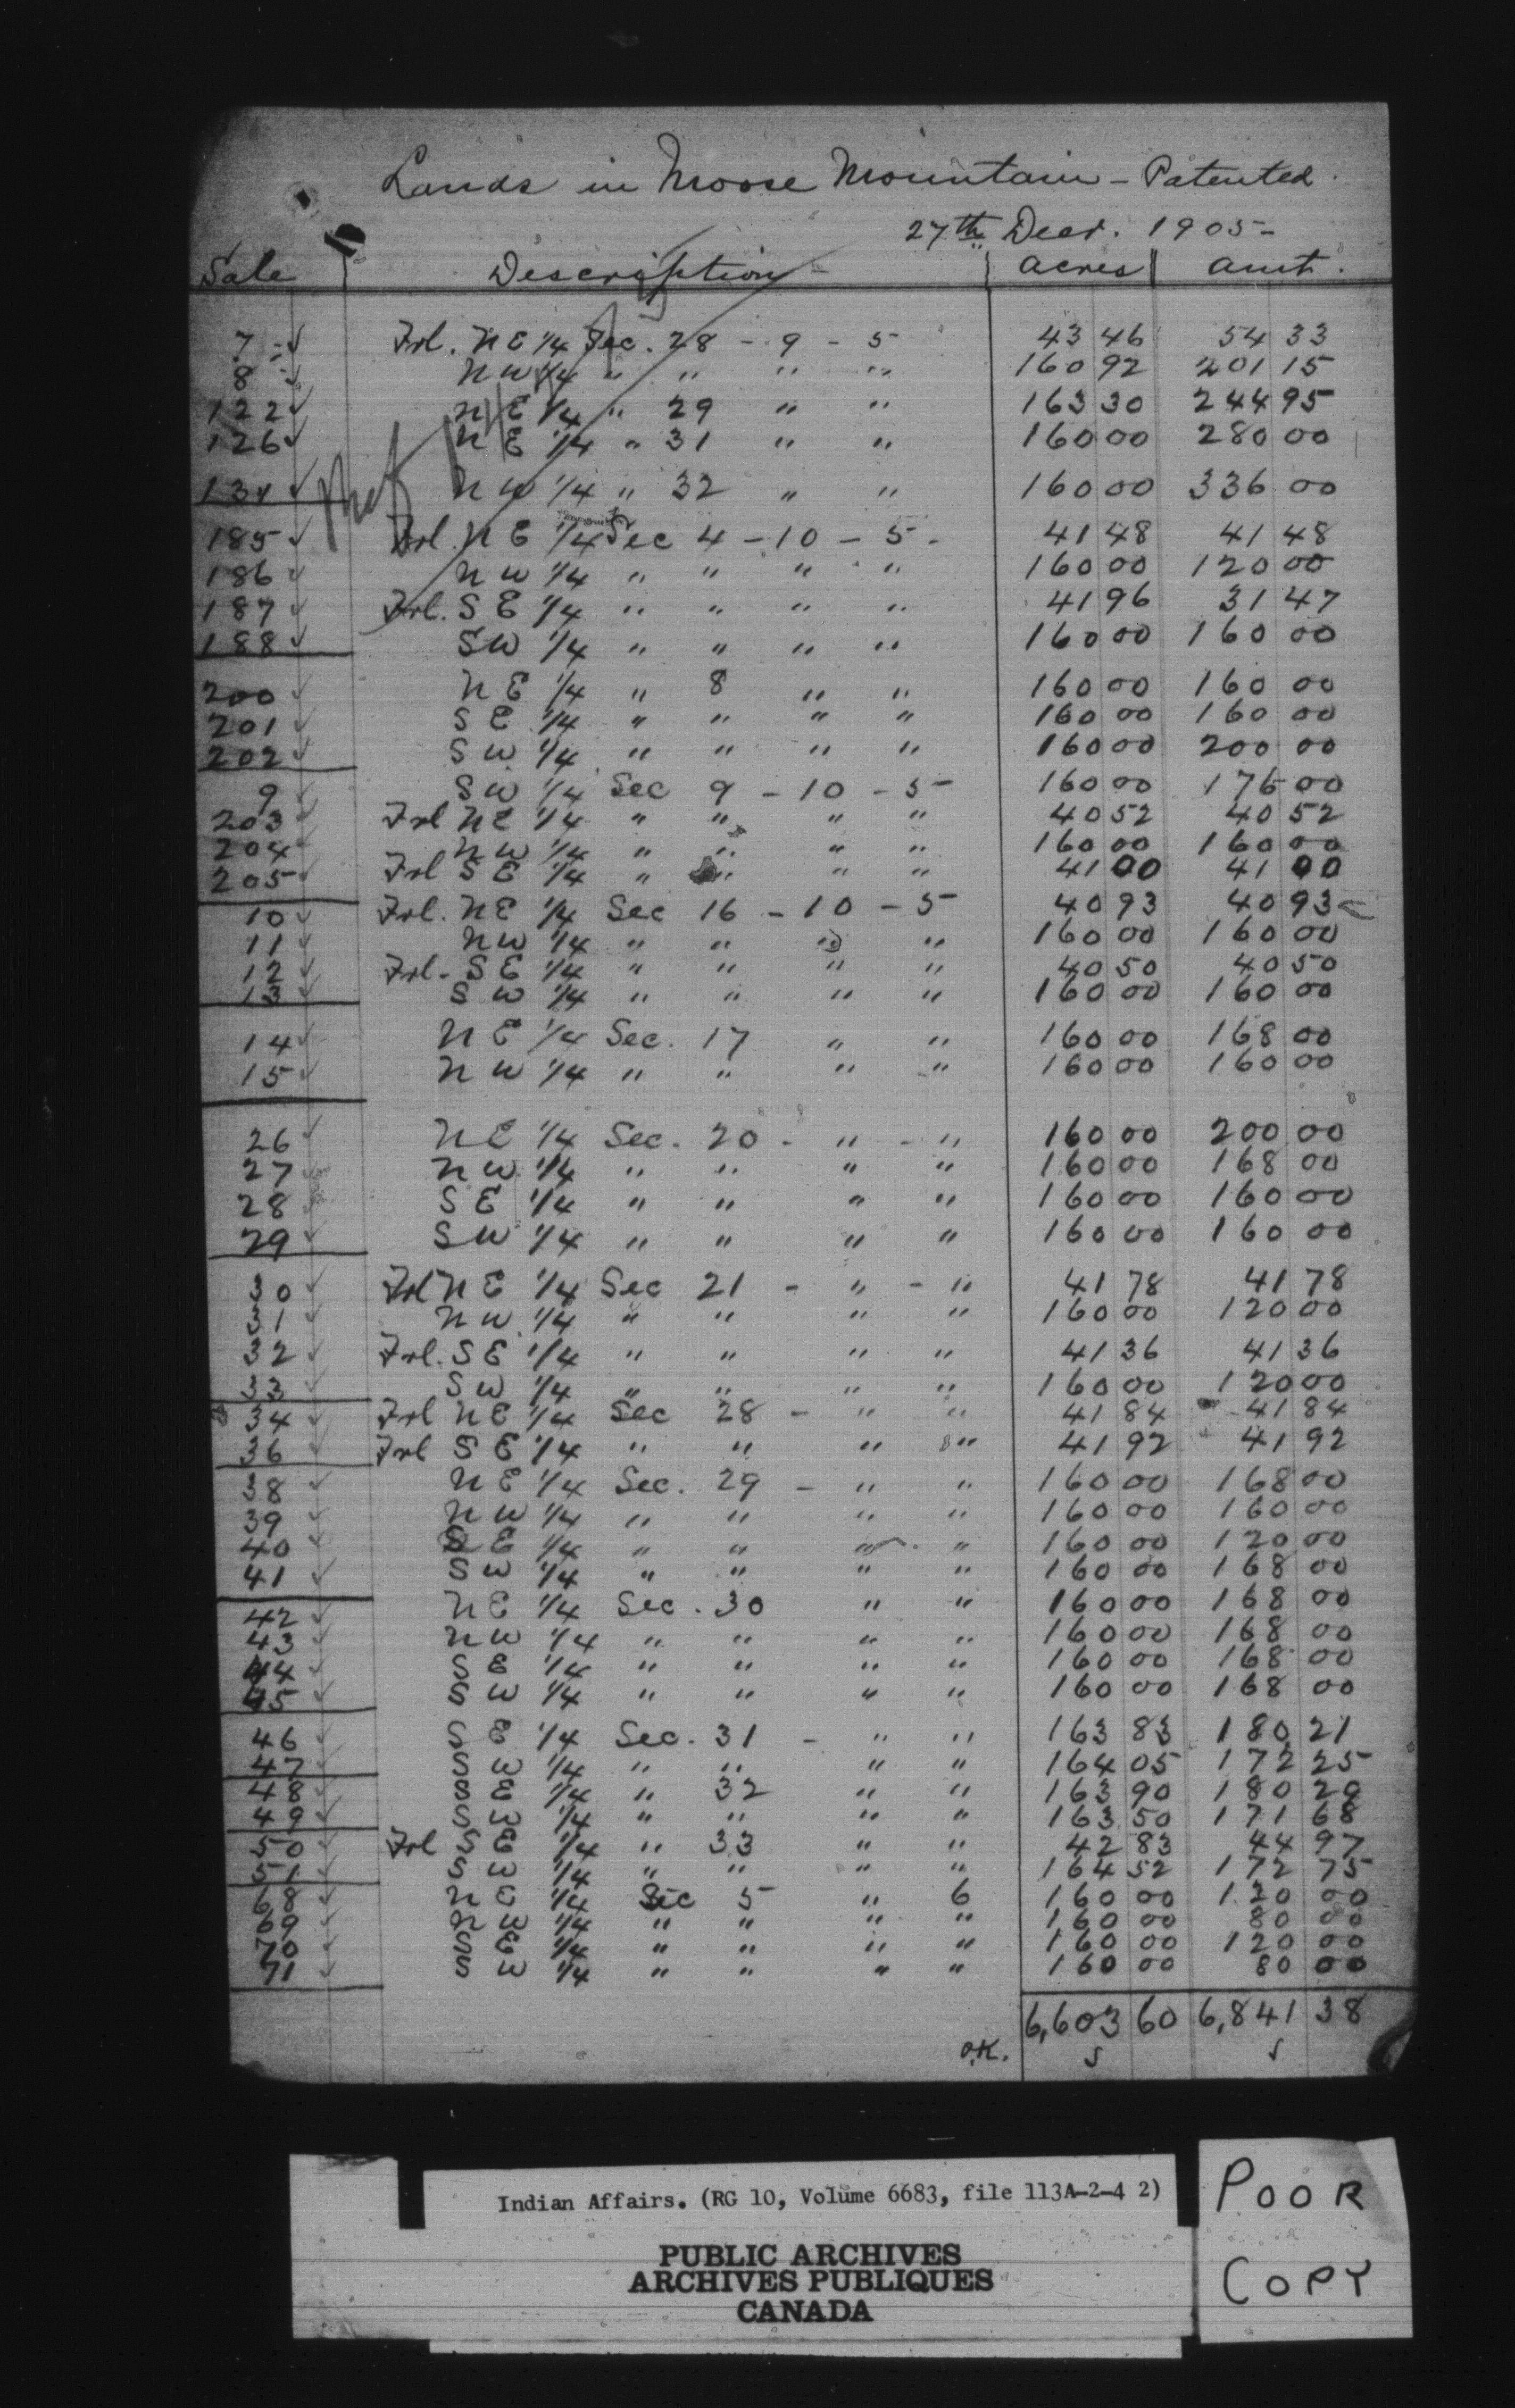 Lands in Moose Mountain - Patented.
27th Decr. 1905 -
Sale Description - acres amt.
7 - ✓ Frl. N E 1/4 Sec. 28 - 9 - 5 43 46 54 33
8 ✓ N W 1/4 " " " " 160 92 201 15
122 ✓ N E 1/4 " 29 " " 163 30 244 95
126 ✓ N E 1/4 " 31 " " 160 00 280 00
131 ✓ N W 1/4 " 32 " " 160 00 336 00
185 ✓ Frl. N E 1/4 Sec 4 - 10 - 5 - 41 48 41 48
186 ✓ N W 1/4 " " " " 160 00 120 00
187 ✓ Frl. S E 1/4 " " " " 41 96 31 47
188 ✓ S W 1/4 " " " " 160 00 160 00
200 ✓ N E 1/4 " 8 " " 160 00 160 00
201 ✓ S E 1/4 " " " " 160 00 160 00
202 ✓ S W 1/4 " " " " 160 00 200 00
9 ✓ S W 1/4 Sec 9 - 10 - 5 160 00 176 00
203 ✓ Frl N E 1/4 " " " " 40 52 40 52
204 ✓ N W 1/4 " " " " 160 00 160 00
205 ✓ Frl S E 1/4 " " " " 41 00 41 00
10 ✓ Frl. N E 1/4 Sec 16 - 10 - 5 40 93 40 93
11 ✓ N W 1/4 " " " " 160 00 160 00
12 ✓ Frl. S E 1/4 " " " " 40 50 40 50
13 ✓ S W 1/4 " " " " 160 00 160 00
14 ✓ N E 1/4 Sec. 17 " " 160 00 168 00
15 ✓ N W 1/4 " " " " 160 00 160 00
26 ✓ N E 1/4 Sec. 20 - " - " 160 00 200 00
27 ✓ N W 1/4 " " " " 160 00 168 00
28 ✓ S E 1/4 " " " " 160 00 160 00
29 ✓ S W 1/4 " " " " 160 00 160 00
30 ✓ Frl N E 1/4 Sec 21 - " - " 41 78 41 78
31 ✓ N W 1/4 " " " " 160 00 120 00
32 ✓ Frl. S E 1/4 " " " " 41 36 41 36
33 ✓ S W 1/4 " " " " 160 00 120 00
34 ✓ Frl N E 1/4 Sec 28 - " " 41 84 41 84
36 ✓ Frl S E 1/4 " " " " 41 92 41 92
38 ✓ N E 1/4 Sec. 29 - " " 160 00 168 00
39 ✓ N W 1/4 " " " " 160 00 160 00
40 ✓ S E 1/4 " " " " 160 00 120 00
41 ✓ S W 1/4 " " " " 160 00 168 00
42 ✓ N E 1/4 Sec. 30 " " 160 00 168 00
43 ✓ N W 1/4 " " " " 160 00 168 00
44 ✓ S E 1/4 " " " " 160 00 168 00
45 ✓ S W 1/4 " " " " 160 00 168 00
46 ✓ S E 1/4 Sec. 31 - " " 163 83 180 21
47 ✓ S W 1/4 " " " " 164 05 172 25
48 ✓ S E 1/4 " 32 " " 163 90 180 29
49 ✓ S W 1/4 " " " " 163 50 171 68
50 ✓ Frl S E 1/4 " 33 " " 42 83 44 97
51 ✓ S W 1/4 " " " " 164 52 172 75
68 ✓ N E 1/4 Sec 5 " 6 160 00 120 00
69 ✓ N W 1/4 " " " " 160 00 80 00
70 ✓ S E 1/4 " " " " 160 00 120 00
71 ✓ S W 1/4 " " " " 160 00 80 00
6,603 60 6,841 38
O.K.
Indian Affairs. (RG 10, Volume 6683, file 113A-2-4 2)
PUBLIC ARCHIVES
ARCHIVES PUBLIQUES
CANADA
POOR
COPY